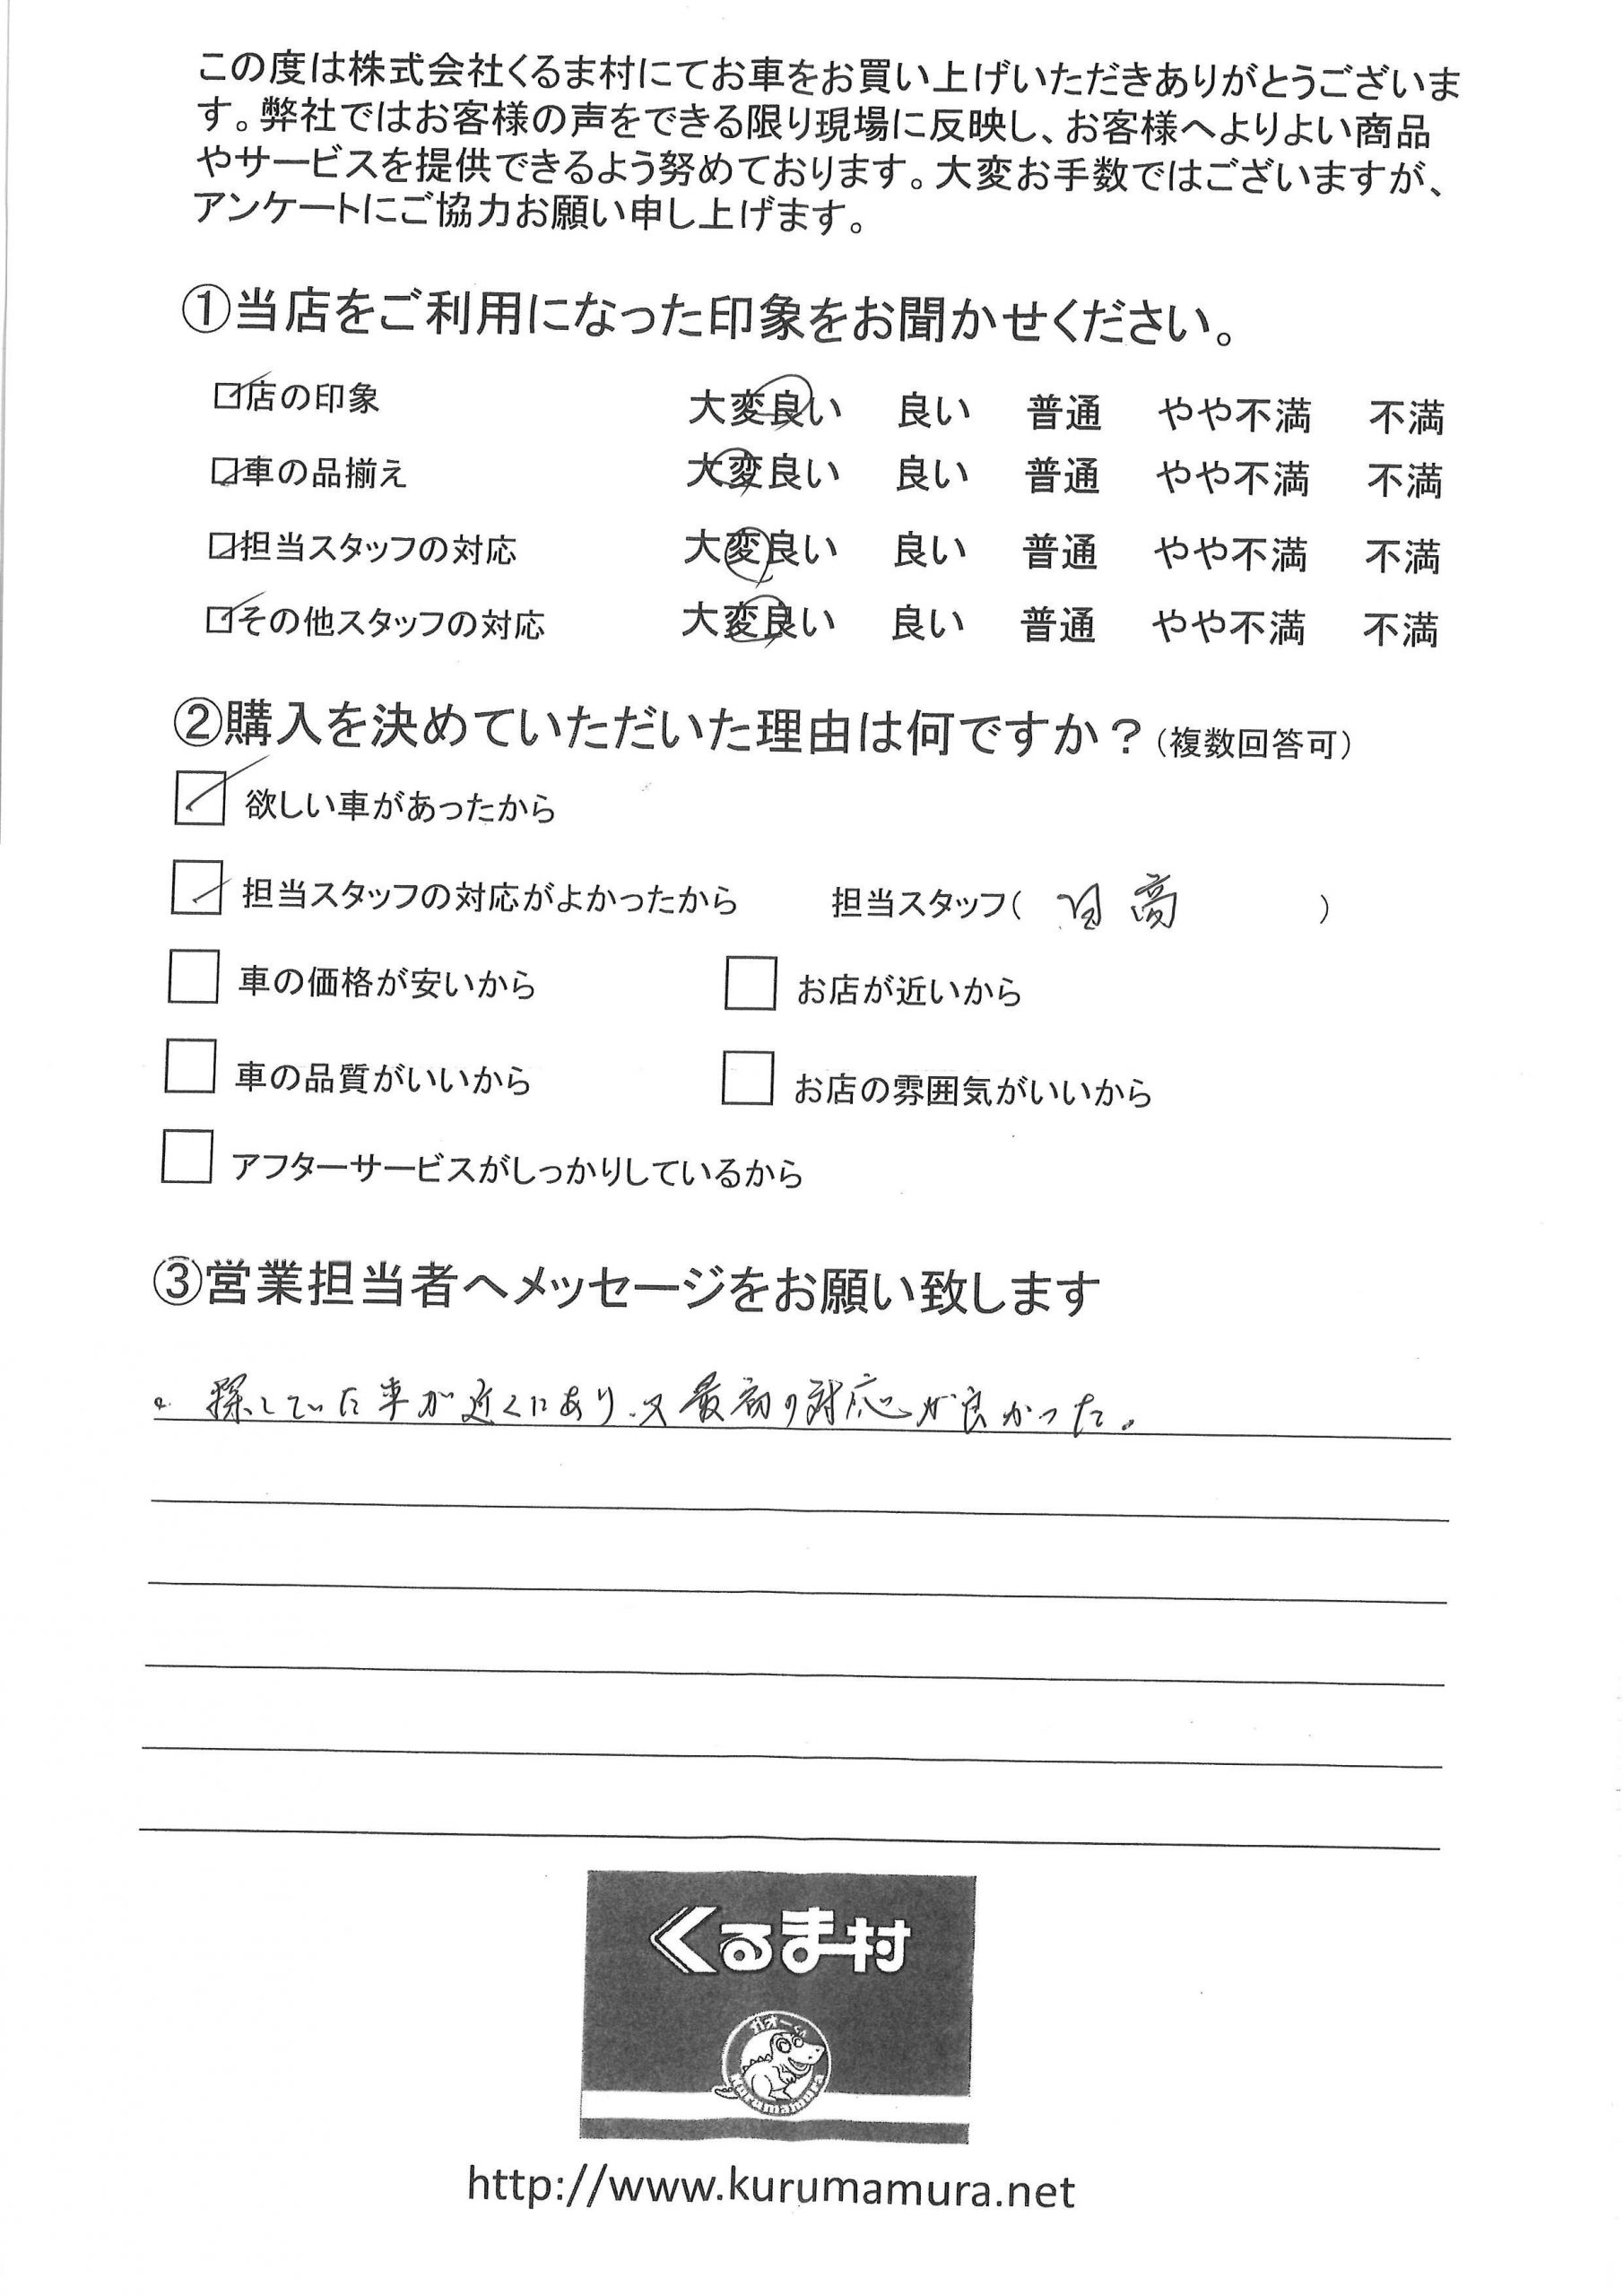 この度は株式会社くるま村にてお車をお買い上げいただきありがとうございま
す。弊社ではお客様の声をできる限り現場に反映し、お客様へよりよい商品
やサービスを提供できるよう努めております。大変お手数ではございますが、
アンケートにご協力お願い申し上げます。
①当店をご利用になった印象をお聞かせください。
店の印象 大変良い 良い 普通 やや不満 不満
車の品揃え 大変良い 良い 普通 やや不満 不満
担当スタッフの対応 大変良い 良い 普通 やや不満 不満
その他スタッフの対応 大変良い 良い 普通 やや不満 不満
②購入を決めていただいた理由は何ですか？(複数回答可)
欲しい車があったから
担当スタッフの対応がよかったから 担当スタッフ( 日高 )
車の価格が安いから お店が近いから
車の品質がいいから お店の雰囲気がいいから
アフターサービスがしっかりしているから
③営業担当者へメッセージをお願い致します
探していた車が近くにあり、又最初の対応が良かった。
くるま村
http://www.kurumamura.net